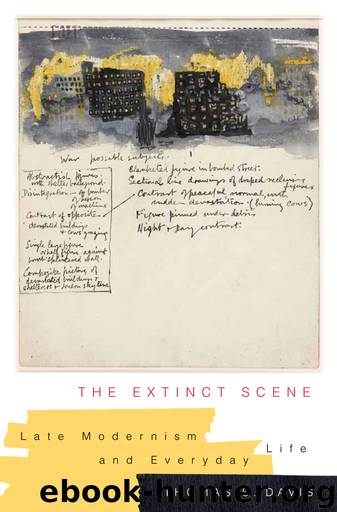 War possible subjects.
Abstractish figures
with shelter background.
Disintegration - of bomber
of machine
Contrast of opposites -
devastated buildings
+ cows grazing
Single large figure
or half figure against
bomb splintered wall.
Composite picture of
devastated buildings +
shelterers + London skyline
Blanketed figure in bombed street.
Sectional line drawings of draped reclining
figures
Contrast of peaceful normal with
sudden devastation (burning cows)
Figure pinned under debris
Night + day contrast.
THE EXTINCT SCENE
Late Modernism
and Everyday
Life
THOMAS S. DAVIS
ebook-hunter.org